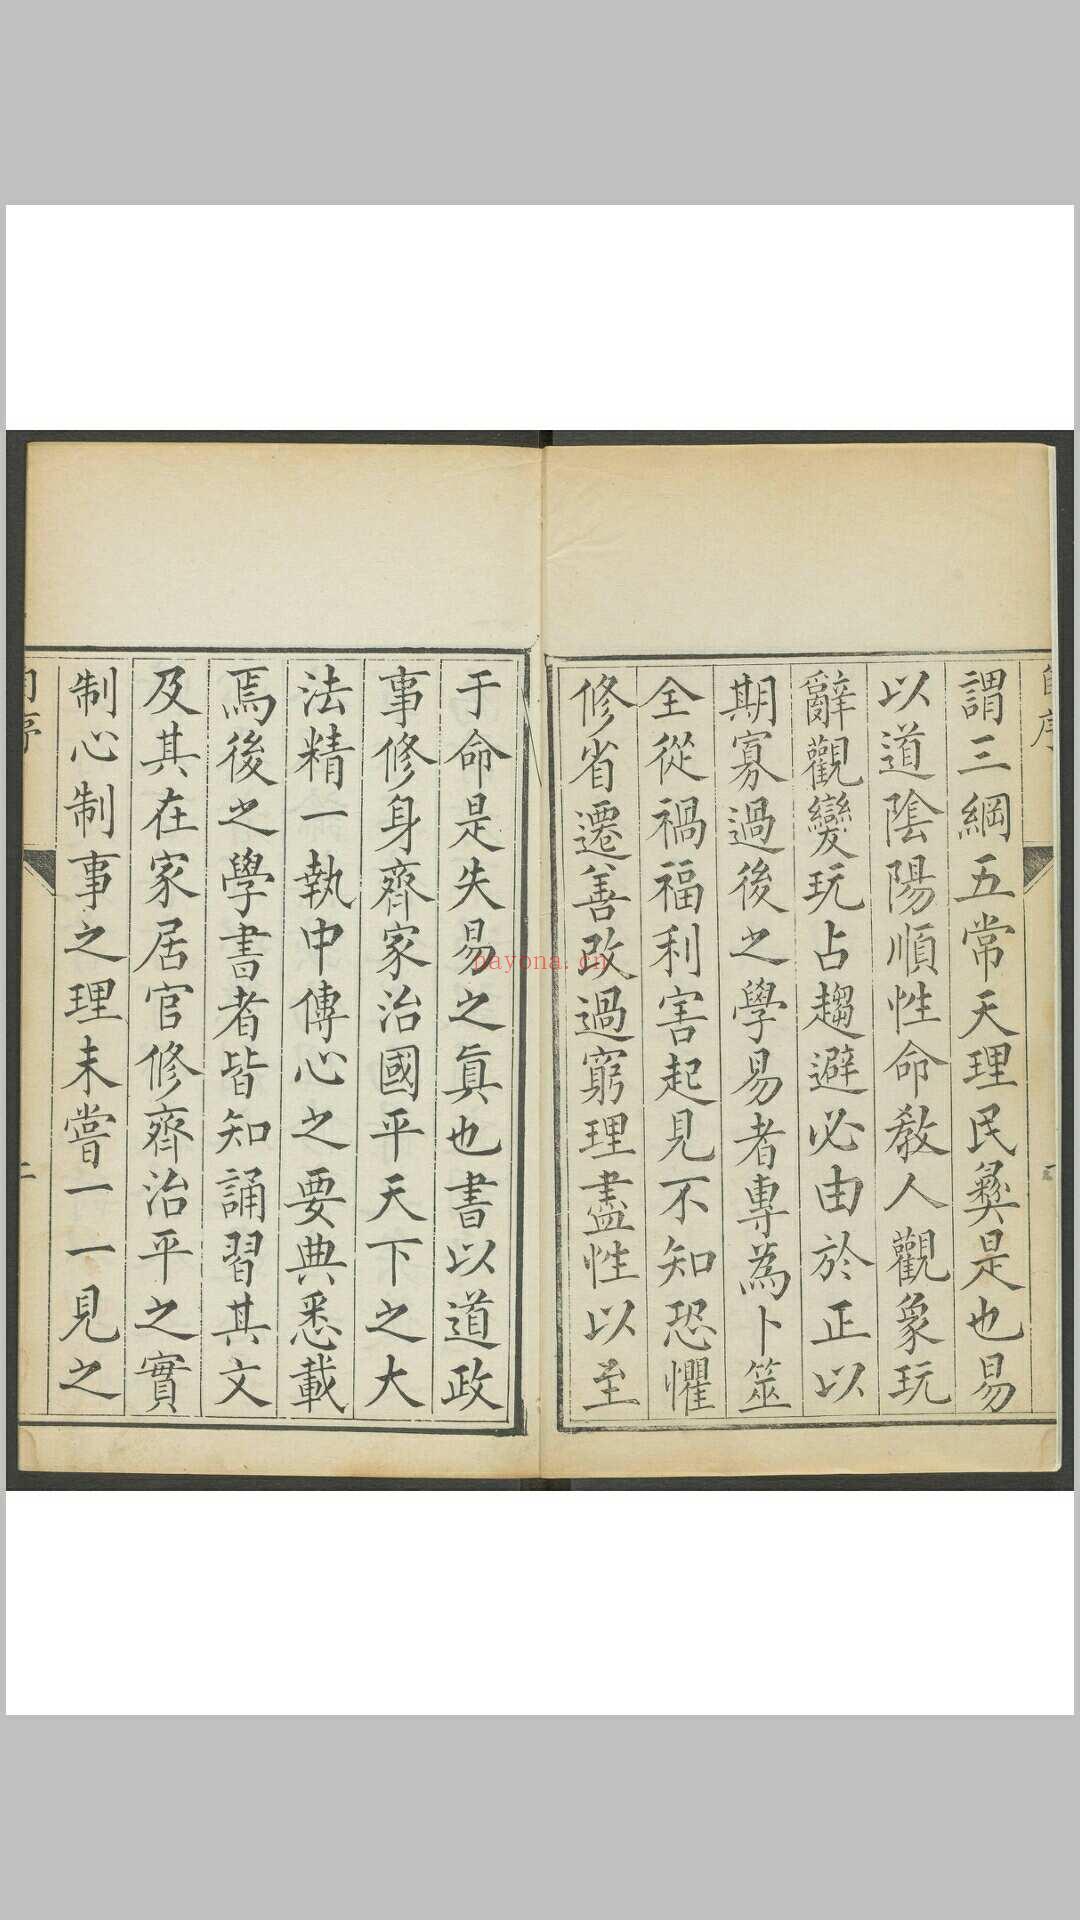 自序
謂三綱五常天理民彝是也易
以道陰陽順性命教人觀象玩
辭觀變玩占趨避必由於正以
期寡過後之學易者專為卜筮
全從禍福利害起見不知恐懼
修省遷善改過窮理盡性以至
于命是失易之真也書以道政
事修身齊家治國平天下之大
法精一執中傳心之要典悉載
焉後之學書者皆知誦習其文
及其在家居官修齊治平之實
制心制事之理未嘗一一見之
自序
二
nayona.cn